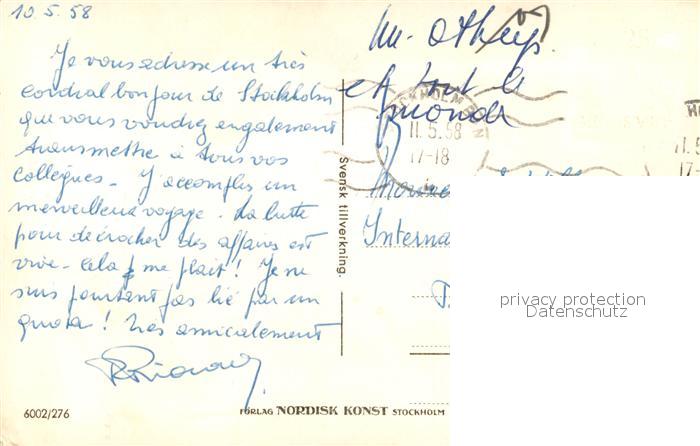 10.5.58
Je vous adresse un très
cordial bonjour de Stockholm
que vous voudrez engalement
transmettre à tous vos
collègues. J'accomplis un
merveilleux voyage. La lutte
pour décrocher des affaires est
vive. Cela me plait! Je ne
suis pourtant pas lié par un
quota! Très amicalement
et tout le
monde
STOCKHOLM
11.5.58
17-18
Interna
Svensk tillverkning.
privacy protection
Datenschutz
6002/276
FÖRLAG NORDISK KONST STOCKHOLM